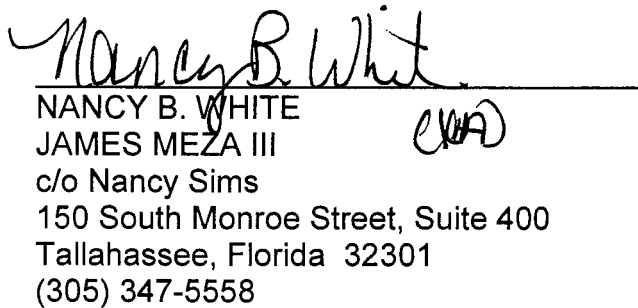 Nancy B. Whit
NANCY B. WHITE
JAMES MEZA III
c/o Nancy Sims
150 South Monroe Street, Suite 400
Tallahassee, Florida 32301
(305) 347-5558